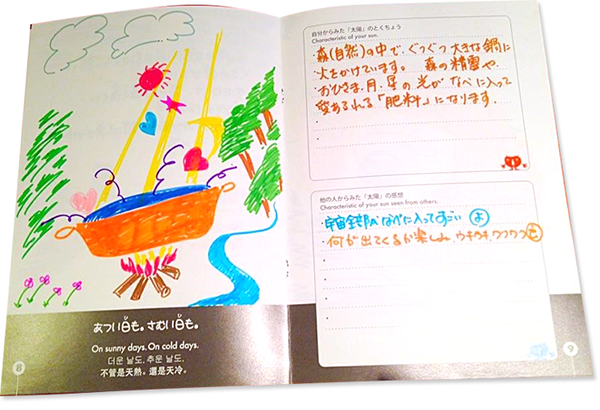 あつい日も。さむい日も。
On sunny days. On cold days.
더운 날도. 추운 날도.
不管是天熱。還是天冷。
8
自分からみた「太陽」のとくちょう
Characteristic of your sun.
森(自然)の中で、ぐつぐつ大きな鍋に
火をかけています。 森の精霊や
おひさま、月、星の光がなべに入って
愛あふれる「肥料」になります。
他の人からみた「太陽」の感想
Characteristic of your sun seen from others.
・宇宙全部がなべに入ってすごい よ
・何が出てくるか楽しみ ウキウキ、ワクワク
9